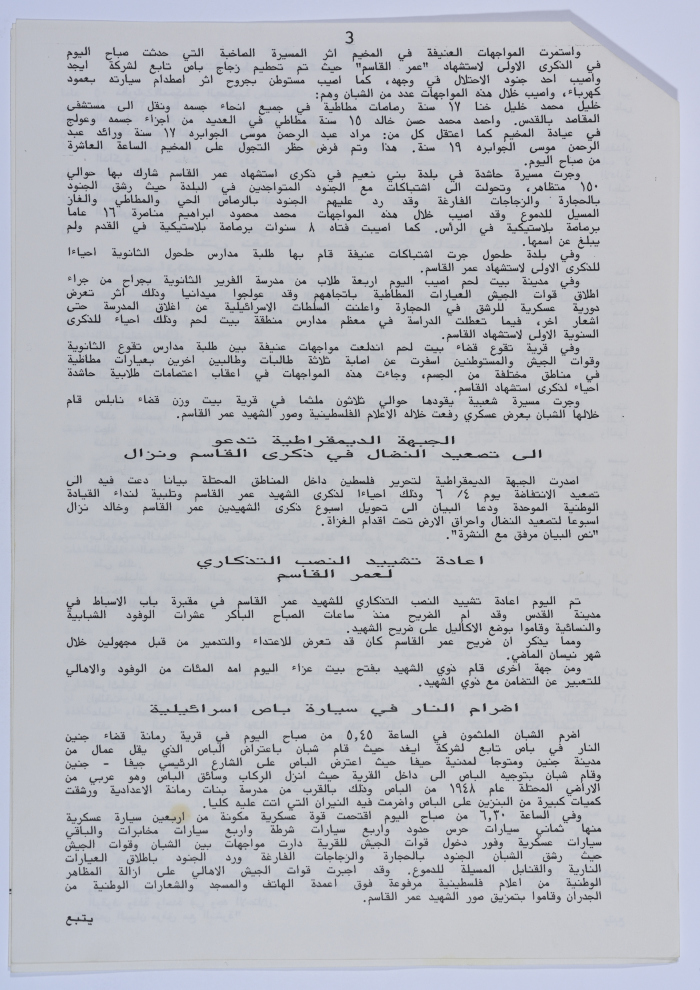 3
واستمرت المواجهات العنيفة في المخيم اثر المسيرة الصاخبة التي حدثت صباح اليوم
في الذكرى الاولى لاستشهاد "عمر القاسم" حيث تم تحطيم زجاج باص تابع لشركة ايجد
واصيب احد جنود الاحتلال في وجهه، كما اصيب مستوطن بجروح اثر اصطدام سيارته بعمود
كهرباء، واصيب خلال هذه المواجهات عدد من الشبان وهم:
خليل محمد خليل خنا ١٧ سنة رصاصات مطاطية في جميع انحاء جسمه ونقل الى مستشفى
المقاصد بالقدس. واحمد محمد حسن خالد ١٥ سنة مطاطي في العديد من اجزاء جسمه وعولج
في عيادة المخيم كما اعتقل كل من: مراد عبد الرحمن موسى الجوابره ١٧ سنة ورائد عبد
الرحمن موسى الجوابره ١٩ سنة. هذا وتم فرض حظر التجول على المخيم الساعة العاشرة
من صباح اليوم.
وجرت مسيرة حاشدة في بلدة بني نعيم في ذكرى استشهاد عمر القاسم شارك بها حوالي
١٥٠ متظاهر، وتحولت الى اشتباكات مع الجنود المتواجدين في البلدة حيث رشق الجنود
بالحجارة والزجاجات الفارغة وقد رد عليهم الجنود بالرصاص الحي والمطاطي والغاز
المسيل للدموع وقد اصيب خلال هذه المواجهات محمد محمود ابراهيم مناصرة ١٦ عاما
برصاصة بلاستيكية في الرأس. كما اصيبت فتاه ٨ سنوات برصاصة بلاستيكية في القدم ولم
يبلغ عن اسمها.
وفي بلدة حلحول جرت اشتباكات عنيفة قام بها طلبة مدارس حلحول الثانوية احياءا
للذكرى الاولى لاستشهاد عمر القاسم.
وفي مدينة بيت لحم اصيب اليوم اربعة طلاب من مدرسة الفرير الثانوية بجراح من جراء
اطلاق قوات الجيش العيارات المطاطية باتجاههم وقد عولجوا ميدانيا وذلك اثر تعرض
دورية عسكرية للرشق في الحجارة واعلنت السلطات الاسرائيلية عن اغلاق المدرسة حتى
اشعار اخر، فيما تعطلت الدراسة في معظم مدارس منطقة بيت لحم وذلك احياء للذكرى
السنوية الاولى لاستشهاد القاسم.
وفي قرية تقوع قضاء بيت لحم اندلعت مواجهات عنيفة بين طلبة مدارس تقوع الثانوية
وقوات الجيش والمستوطنين اسفرت عن اصابة ثلاثة طالبات وطالبين اخرين بعيارات مطاطية
في مناطق مختلفة من الجسم، وجاءت هذه المواجهات في اعقاب اعتصامات طلابية حاشدة
احياء لذكرى استشهاد القاسم.
وجرت مسيرة شعبية يقودها حوالي ثلاثون ملثما في قرية بيت وزن قضاء نابلس قام
خلالها الشبان بعرض عسكري رفعت خلاله الاعلام الفلسطينية وصور الشهيد عمر القاسم.
الجبهة الديمقراطية تدعو
الى تصعيد النضال في ذكرى القاسم ونزال
اصدرت الجبهة الديمقراطية لتحرير فلسطين داخل المناطق المحتلة بيانا دعت فيه الى
تصعيد الانتفاضة يوم ٤/ ٦ وذلك احياءا لذكرى الشهيد عمر القاسم وتلبية لنداء القيادة
الوطنية الموحدة ودعا البيان الى تحويل اسبوع ذكرى الشهيدين عمر القاسم وخالد نزال
اسبوعا لتصعيد النضال واحراق الارض تحت اقدام الغزاة.
"نص البيان مرفق مع النشرة".
اعادة تشييد النصب التذكاري
لعمر القاسم
تم اليوم اعادة تشييد النصب التذكاري للشهيد عمر القاسم في مقبرة باب الاسباط في
مدينة القدس وقد ام الضريح منذ ساعات الصباح الباكر عشرات الوفود الشبابية
والنسائية وقاموا بوضع الاكاليل على ضريح الشهيد.
ومما يذكر ان ضريح عمر القاسم كان قد تعرض للاعتداء والتدمير من قبل مجهولين خلال
شهر نيسان الماضي.
ومن جهة اخرى قام ذوي الشهيد بفتح بيت عزاء اليوم امه المئات من الوفود والاهالي
للتعبير عن التضامن مع ذوي الشهيد.
اضرام النار في سيارة باص اسرائيلية
اضرم الشبان الملثمون في الساعة ٥,٤٥ من صباح اليوم في قرية رمانة قضاء جنين
النار في باص تابع لشركة ايغد حيث قام شبان باعتراض الباص الذي يقل عمال من
مدينة جنين ومتوجا لمدنية حيفا حيث اعترض الباص على الشارع الرئيسي جيفا - جنين
وقام شبان بتوجيه الباص الى داخل القرية حيث انزل الركاب وسائق الباص وهو عربي من
الاراضي المحتلة عام ١٩٤٨ من الباص وذلك بالقرب من مدرسة بنات رمانة الاعدادية ورشقت
كميات كبيرة من البنزين على الباص واضرمت فيه النيران التي اتت عليه كليا.
وفي الساعة ٦,٣٠ من صباح اليوم اقتحمت قوة عسكرية مكونة من اربعين سيارة عسكرية
منها ثماني سيارات حرس حدود واربع سيارات شرطة واربع سيارات مخابرات والباقي
سيارات عسكرية وفور دخول قوات الجيش للقرية دارت مواجهات بين الشبان وقوات الجيش
حيث رشق الشبان الجنود بالحجارة والزجاجات الفارغة ورد الجنود باطلاق العيارات
النارية والقنابل المسيلة للدموع. وقد اجبرت قوات الجيش الاهالي على ازالة المظاهر
الوطنية من اعلام فلسطينية مرفوعة فوق اعمدة الهاتف والمسجد والشعارات الوطنية من
الجدران وقاموا بتمزيق صور الشهيد عمر القاسم.
يتبع